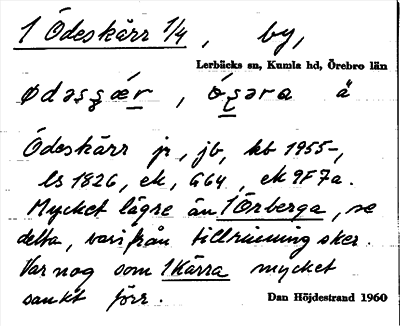 1 Ödeskärr 1/4, by,
Lerbäcks sn, Kumla hd, Örebro län
Ödeskärr jr, jb, kb 1955-,
ls 1826, ek, G64, ek 9F7a.
Mycket lägre än 1 Örberga, se
detta, varifrån tillrinning sker.
Var nog som 1 Kärra mycket
sankt förr.
Dan Höjdestrand 1960